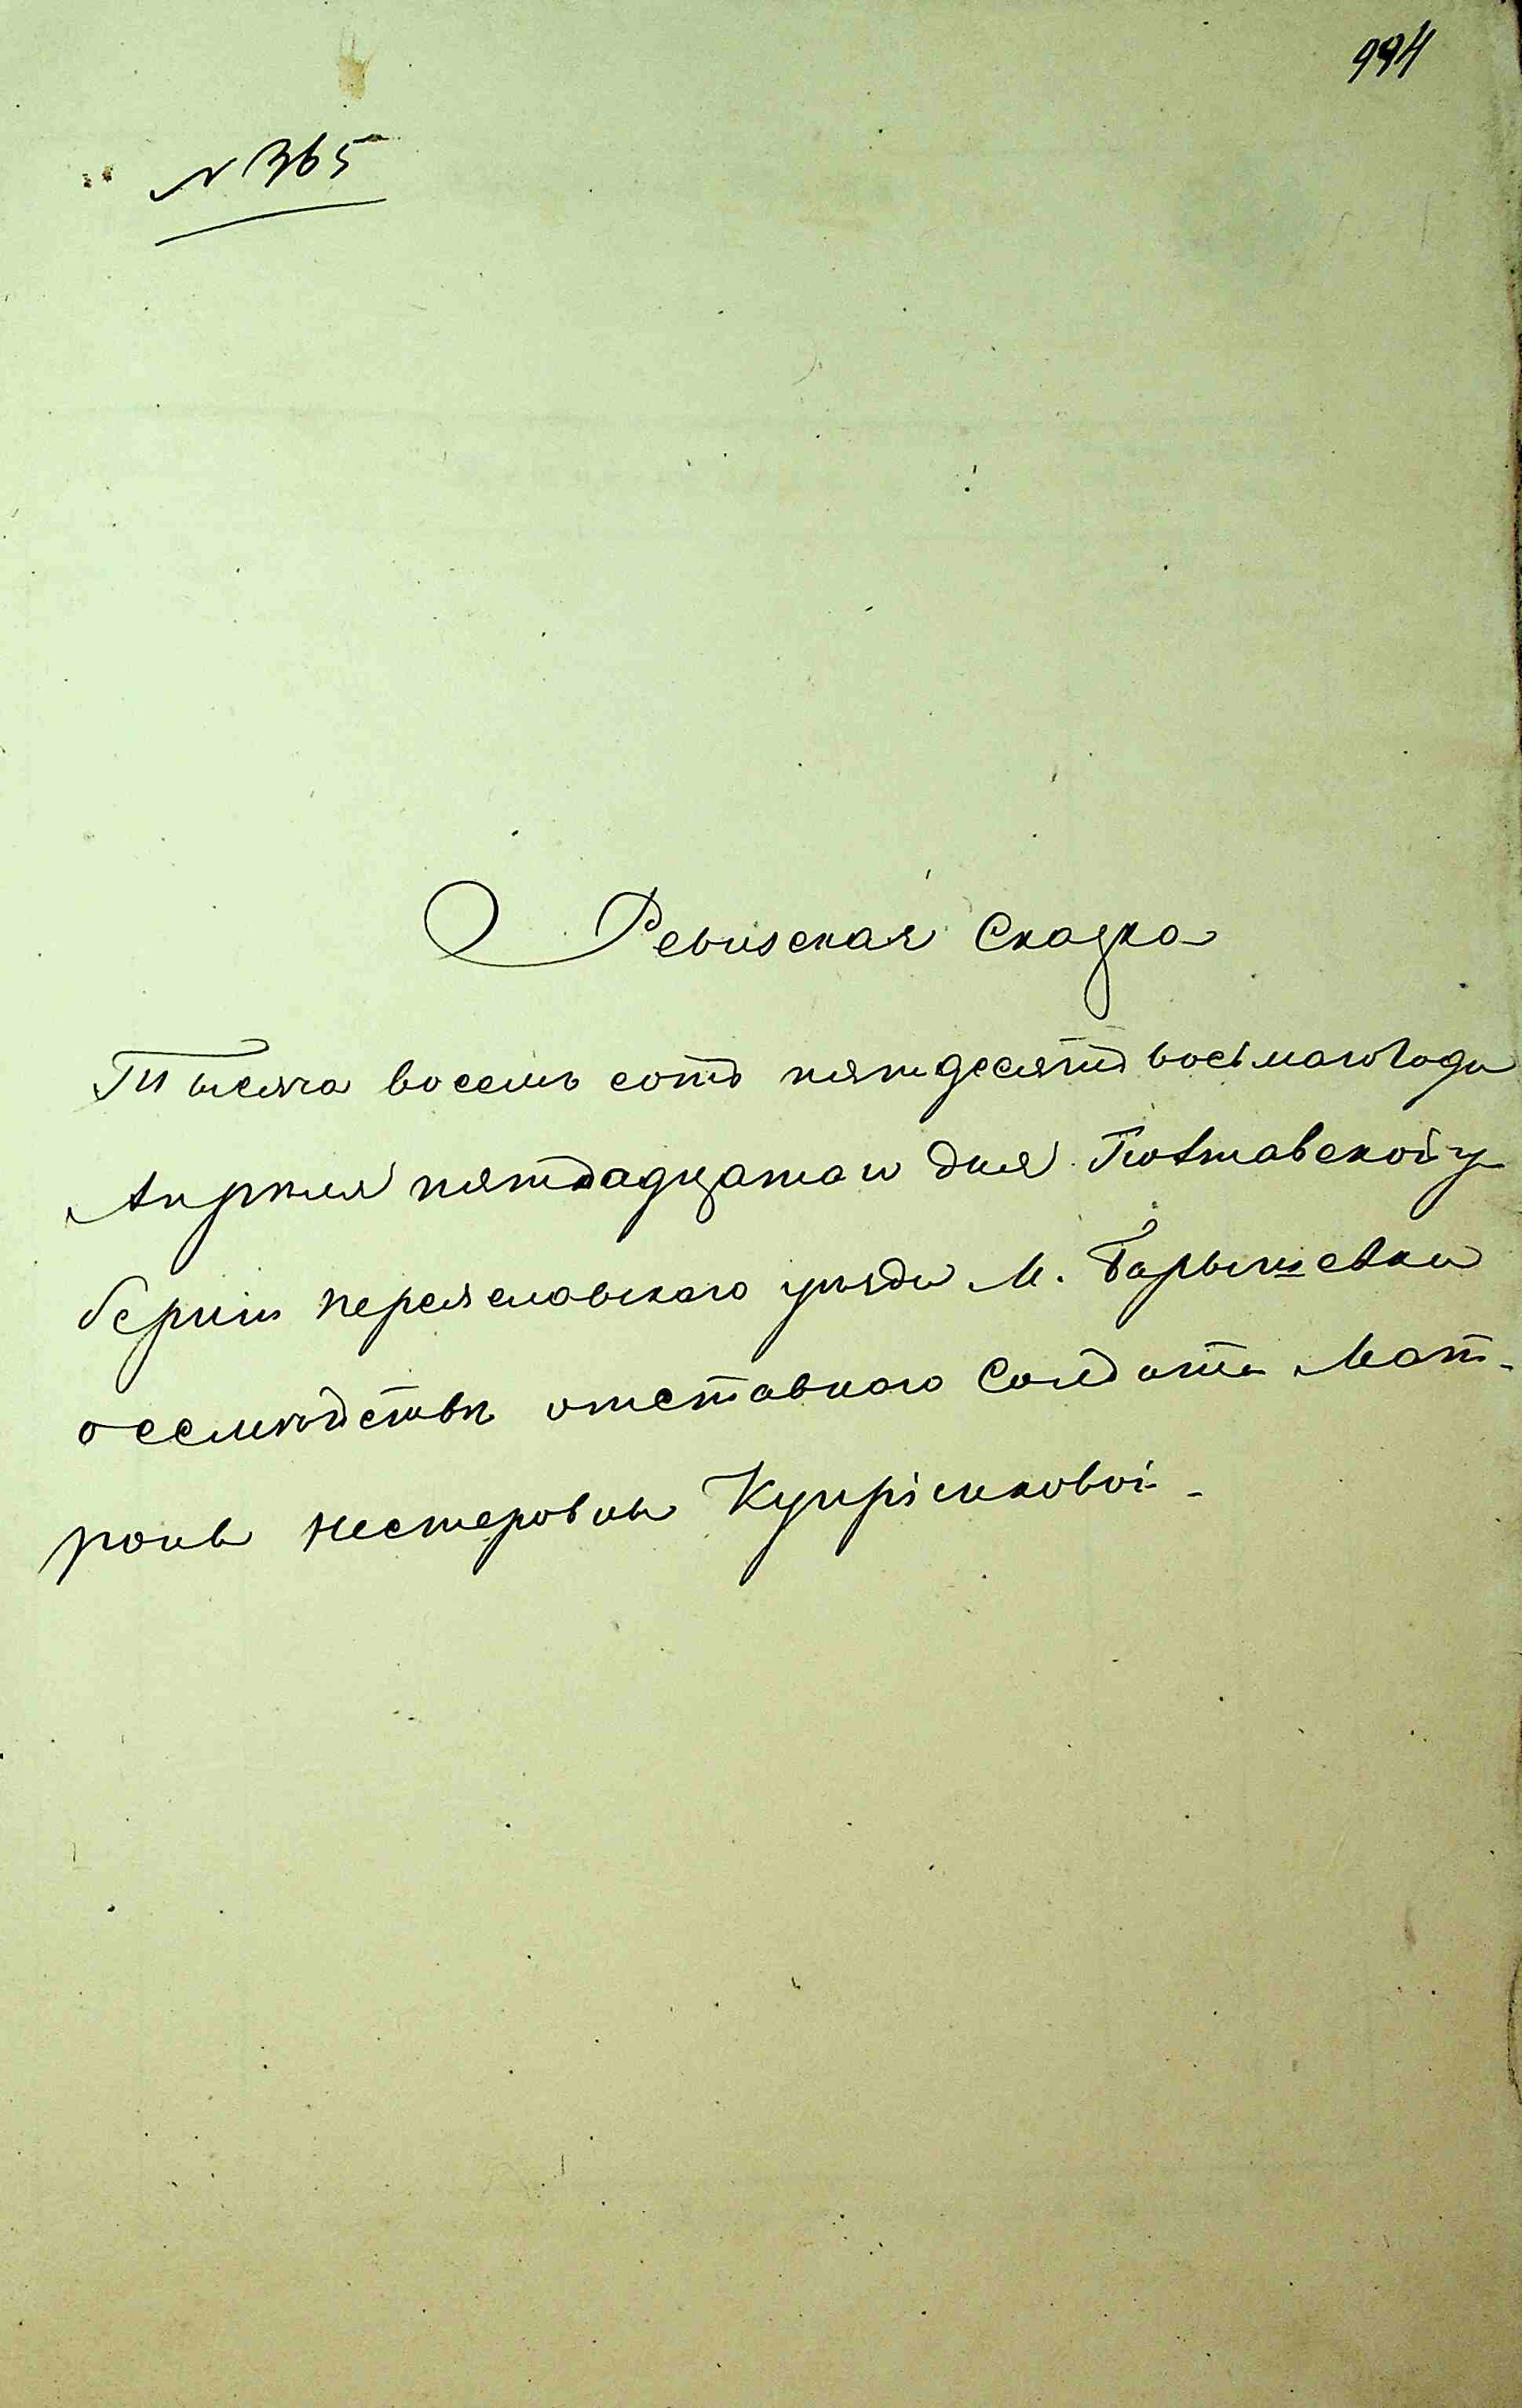 994
№ 365
Ревизская Сказка
Тысяча восемь сотъ пятдесятъ восьмаго Года
Апреля пятнадцатаго дня Полтавской гу
берніи переяславскаго уезда М. Барышевки
о семъйстве отставнаго Солдата Мат-
роны Нестеровны Купріенковой -